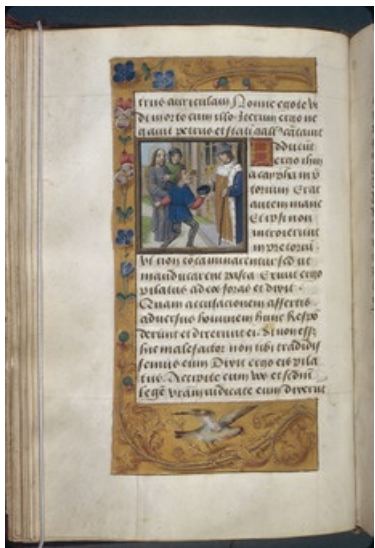 trus auriculam Nonne ego te vi
di in orto cum illo. Iterum ergo ne
gauit petrus et statī gall' cātauit
Adducūt
ergo ihm
a caypha in p̄
torium Erat
autem mane
Et ipsi non
introierunt
in pretoriū
Vt non cōtaminarentur sed ut
manducarent pasca Exiuit ergo
pilatus ad eos foras et dixit.
Quam accusationem affertis
aduersus hominem hunc Respō
derunt et dixerunt ei. Si non ess;
hic malefactor non tibi tradidis
semus eum Dixit ergo eis pila
tus. Accipite eum vos et scdm̄
legē vrām iudicate eum dixerūt